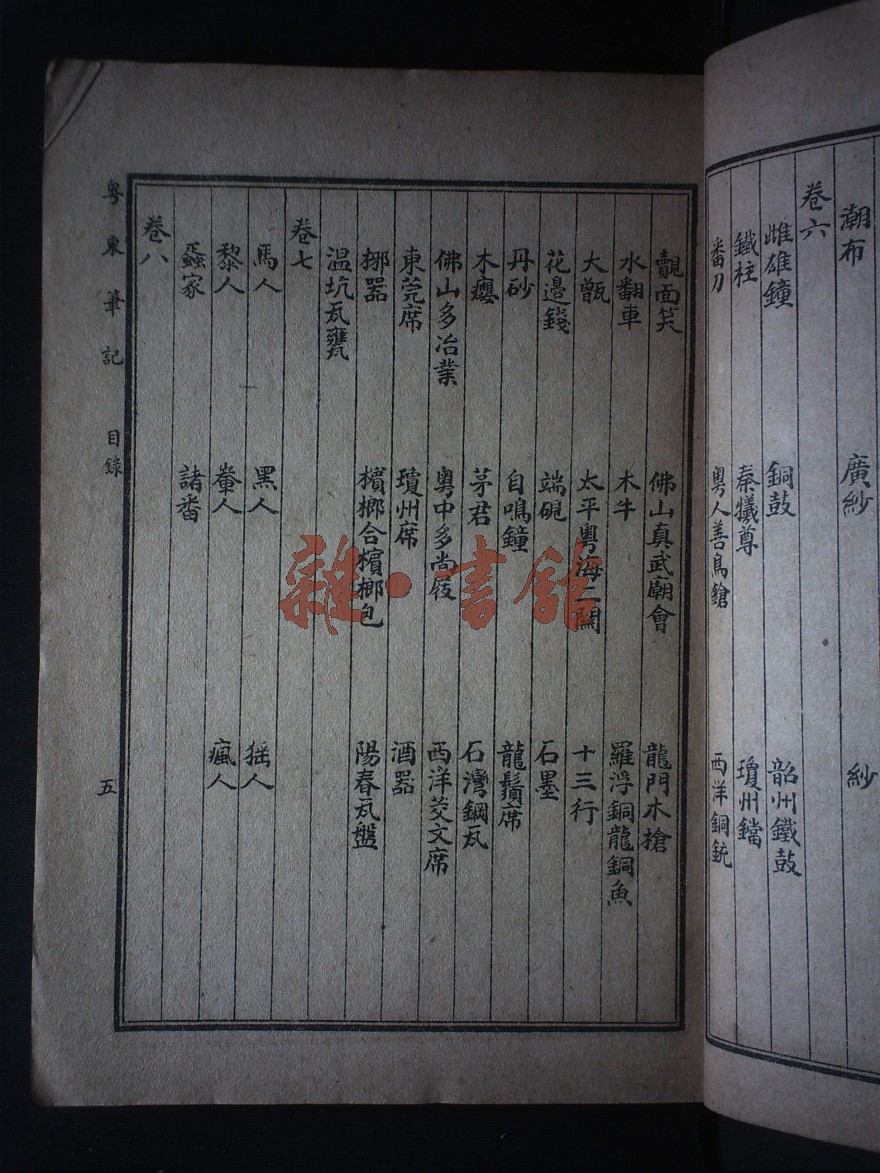 潮布 廣紗 紗
卷六
雌雄鐘 銅鼓 韶州鐵鼓
鐵柱 秦犧尊 瓊州鐺
番刀 粵人善鳥鎗 西洋銅銃
覿面笑 佛山真武廟會 龍門木槍
水翻車 木牛 羅浮銅龍銅魚
大甑 太平粵海二關 十三行
花邊錢 端硯 石墨
丹砂 自鳴鐘 龍鬚席
木癭 茅君 石灣鋼瓦
佛山多冶業 粵中多尚屐 西洋茭文席
東莞席 瓊州席 酒器
挪器 檳榔合檳榔包 陽春瓦盤
溫坑瓦甕
卷七
馬人 黑人 猺人
黎人 輋人 瘋人
蜑家 諸番
卷八
粵東筆記 目錄 五
雜·書館